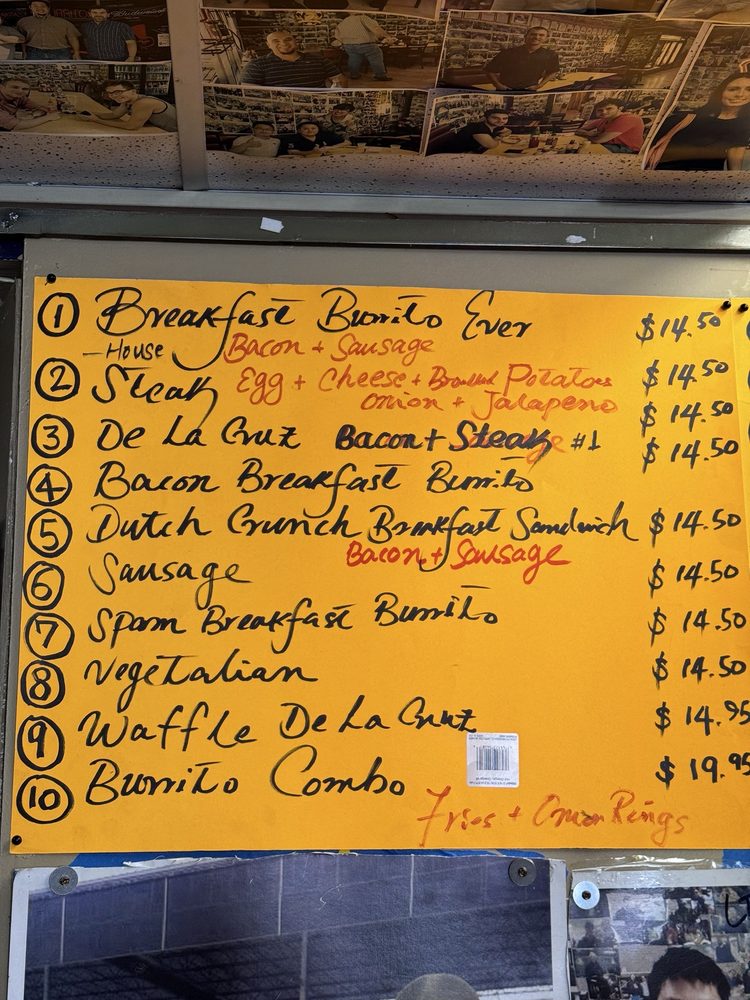 ① Breakfast Burrito Ever $14.50
- House Bacon + Sausage
② Steak Egg + Cheese + Potatoes $14.50
Onion + Jalapeno $14.50
③ De La Cruz Bacon + Steak #1 $14.50
④ Bacon Breakfast Burrito
⑤ Dutch Crunch Breakfast Sandwich $14.50
Bacon + Sausage
⑥ Sausage $14.50
⑦ Spam Breakfast Burrito $14.50
⑧ Vegetalian $14.50
⑨ Waffle De La Cruz $14.95
⑩ Burrito Combo $19.95
Fries + Onion Rings